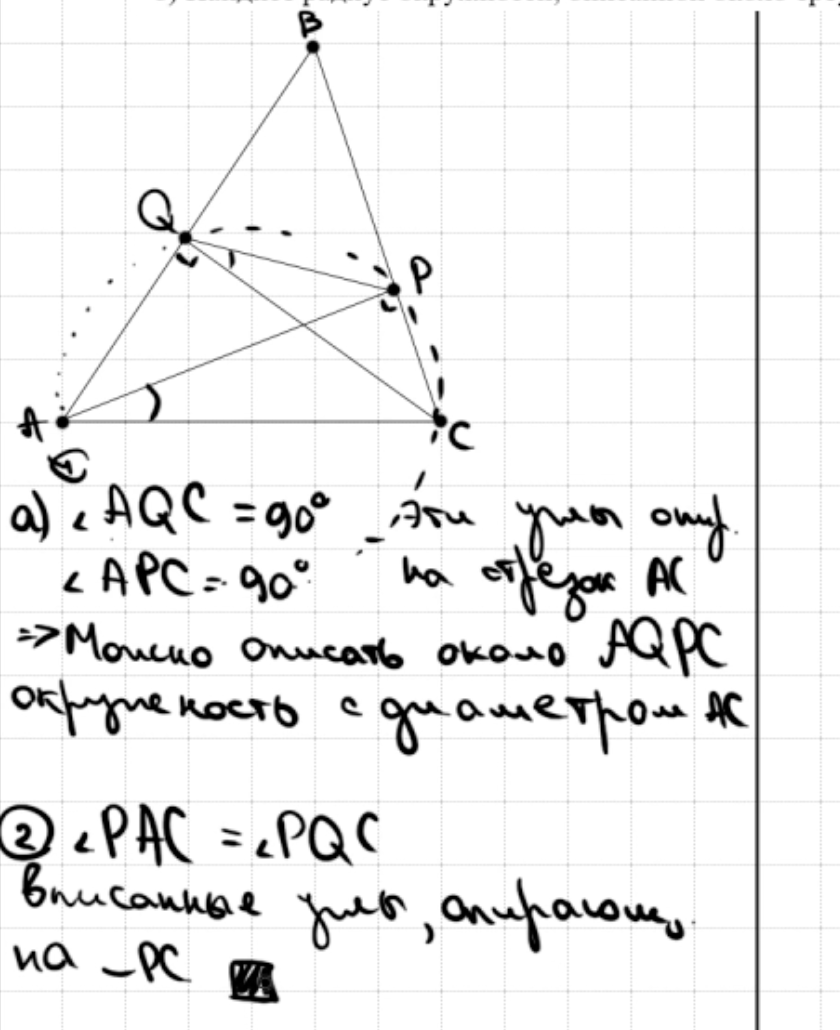 B
Q
P
A
C
а) ∠AQC = 90° Эти углы опир.
∠APC = 90° на отрезок AC
=> Можно описать около AQPC
окружность с диаметром AC
② ∠PAC = ∠PQC
Вписанные углы, опирающ.
на ◡PC